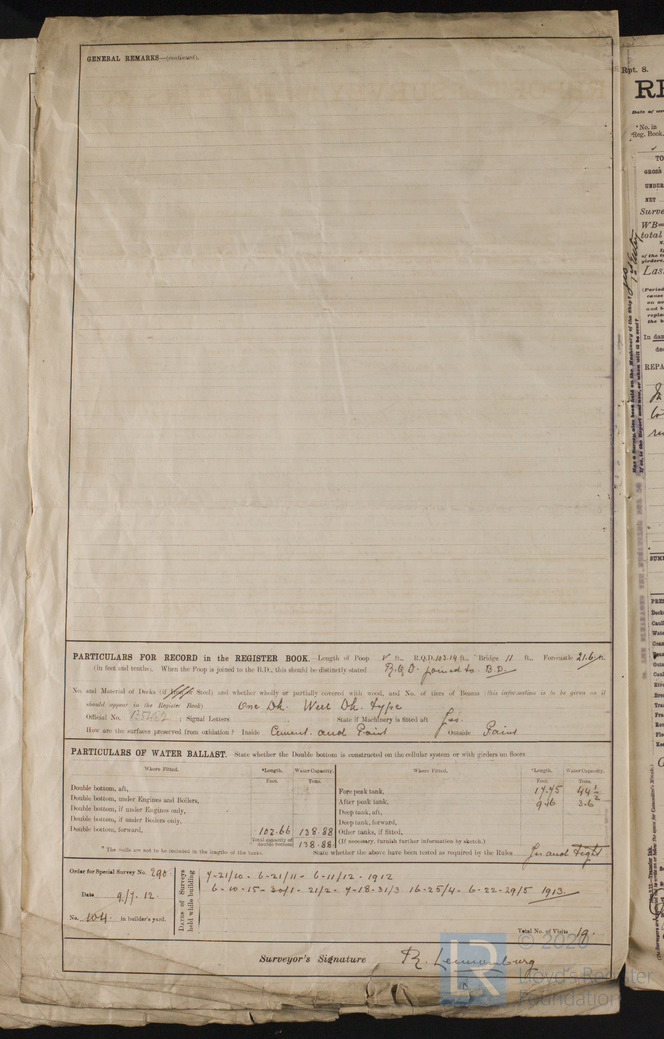 GENERAL REMARKS—(continued).
PARTICULARS FOR RECORD in the REGISTER BOOK.—Length of Poop ✓ ft., R.Q.D. 103.14 ft., Bridge 11 ft., Forecastle 21.6 ft.
(in feet and tenths). When the Poop is joined to the B.D., this should be distinctly stated R.Q.D. joined to B.D.
No. and Material of Decks (if Steel) and whether wholly or partially covered with wood, and No. of tiers of Beams (this information is to be given as it
should appear in the Register Book) One Dk. Well Dk. type
Official No. ; Signal Letters State if Machinery is fitted aft Yes.
How are the surfaces preserved from oxidation? Inside Cement and Paint Outside Paint
PARTICULARS OF WATER BALLAST. State whether the Double bottom is constructed on the cellular system or with girders on floors
Where Fitted. *Length. Water Capacity. Where Fitted. *Length. Water Capacity.
Feet. Tons. Feet. Tons.
Double bottom, aft, Fore peak tank, 17.75 44½
Double bottom, under Engines and Boilers, After peak tank,
Double bottom, if under Engines only, Deep tank, aft,
Double bottom, if under Boilers only, Deep tank, forward,
Double bottom, forward, 102.66 138.88 Other tanks, if fitted,
Total capacity of double bottom 138.88 (If necessary, furnish further information by sketch.)
* The wells are not to be included in the lengths of the tanks. State whether the above have been tested as required by the Rules Yes and tight
Order for Special Survey No. 290
Date 9/7.12.
No. 104 in builder's yard.
Dates of Surveys held while building
7-21/10 - 6-21/11 - 6-11/12 - 1912
6-10-15-30/1 - 21/2 - 7-18-31/3 16-25/4 - 6-22-29/5 1913.
Total No. of Visits 19.
Surveyor's Signature
© 2020
Lloyd's Register
Foundation
Rpt. 8.
*No. in
Reg. Book.
TO
GROSS
UNDER
NET
Surve
total
Las
REPA